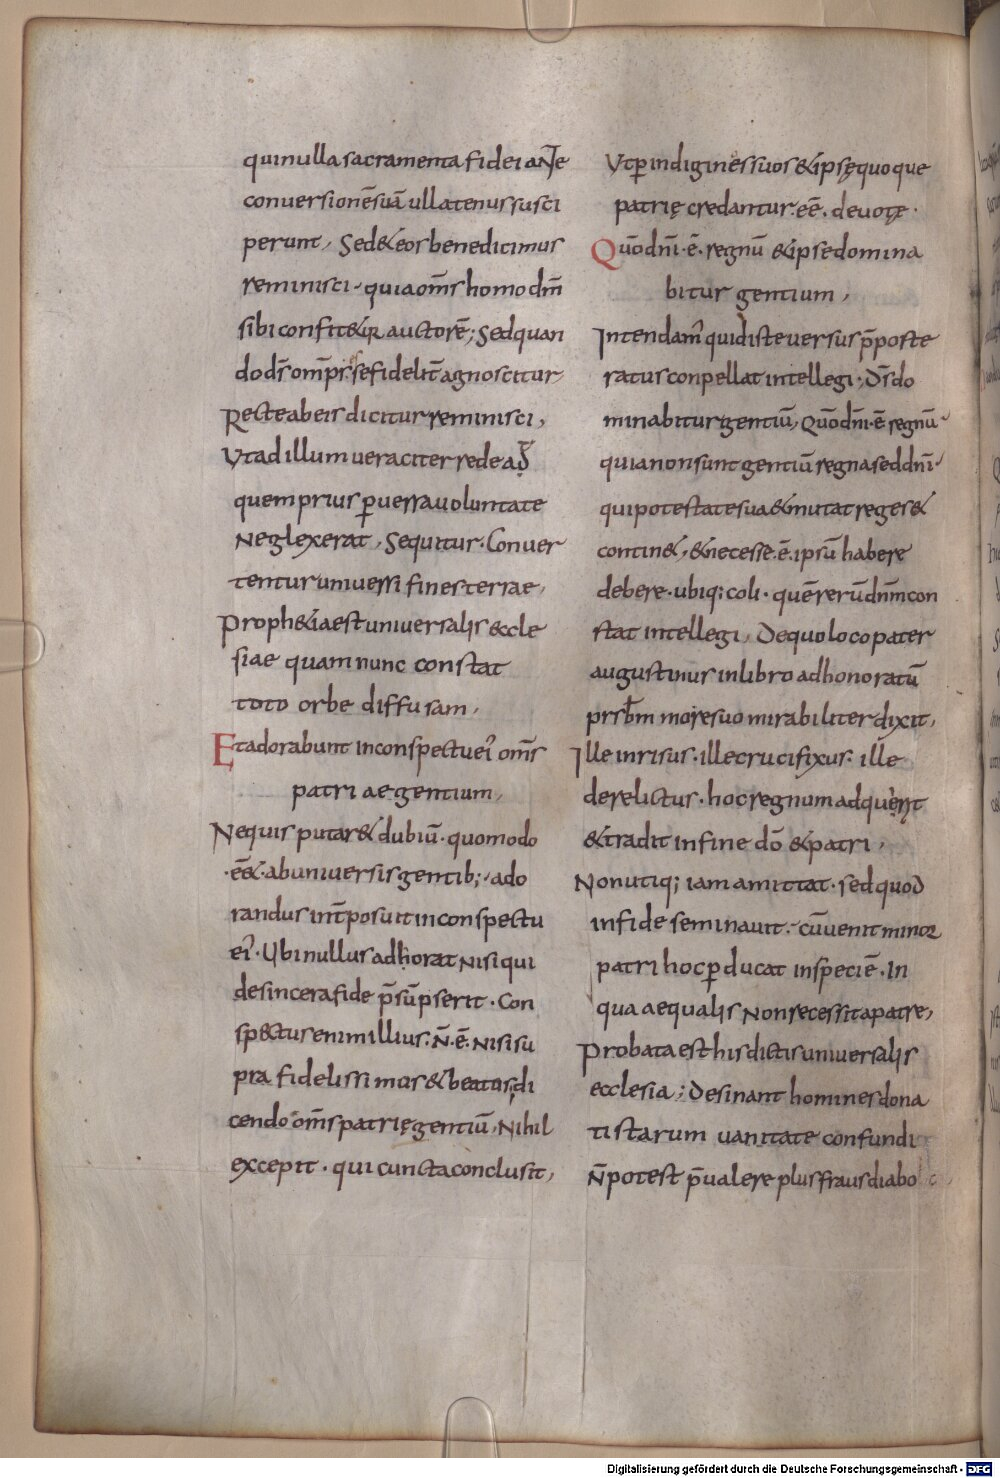 qui nulla sacramenta fidei ante
conversionē suā ullatenus susci
perunt, Sed & eos benedicimus
reminisci, quia om̄s homo dm̄
sibi confit&ur auctorē; Sed quan
do ds̄ omp̄s se fidelit̄ agnoscitur,
Recte ab eis dicitur reminisci,
Ut ad illum veraciter redeāt
quem prius ꝑversa voluntate
Neglexerat, Sequitur. Conver
tentur universi fines terrae,
Proph&ia est universalis eccle
siae quam nunc constat
toto orbe diffusam,
Et adorabunt in conspectu ei' om̄s
patriae gentium,
Nequis putar& dubiū. quomodo
ēē&. ab universis gentib; ado
randus int̄posuit in conspectu
ei'. Ubi nullus adhorat Nisi qui
de sincera fide p̄sūpserit. Con
sp&tus enim illius. N̄. ē. Nisi su
pra fidelissimos & beatos, di
cendo om̄s patrię gentiū, Nihil
excepit. qui cuncta conclusit,
Ut ꝑ indigines suos & ipsę quoque
patrię credantur. eē. devotę.
Qūo dn̄i. ē. regnū & ipse domina
bitur gentium,
Intendam' quid iste versus p̄poste
ratus conpellat intellegi; Ds̄ do
minabitur gentiū, Qūo dn̄i. ē regnū
quia non sunt gentiū regna sed dn̄i
qui potestate sua & mutat reges &
contin&, & necesse. ē. ipsū habere
debere. ubiq; coli. quē rerū dn̄m con
stat intellegi, De quo loco pater
augustinus in libro ad honoratū
prsb̄m more suo mirabiliter dixit,
Ille inrisus. ille crucifixus. ille
derelictus. hoc regnum adquęrit
& tradit in fine dō & patri,
Non utiq; iam amittat. sed quod
in fide seminavit. cū venit minor
patri hoc ꝑducat in speciē. In
qua aequalis Non recessit a patre,
Probata est his dictis universalis
ecclesia; Desinant homines dona
tistarum vanitate confundi
N̄ potest p̄valere plus fraus diabo
Digitalisierung gefördert durch die Deutsche Forschungsgemeinschaft - DFG